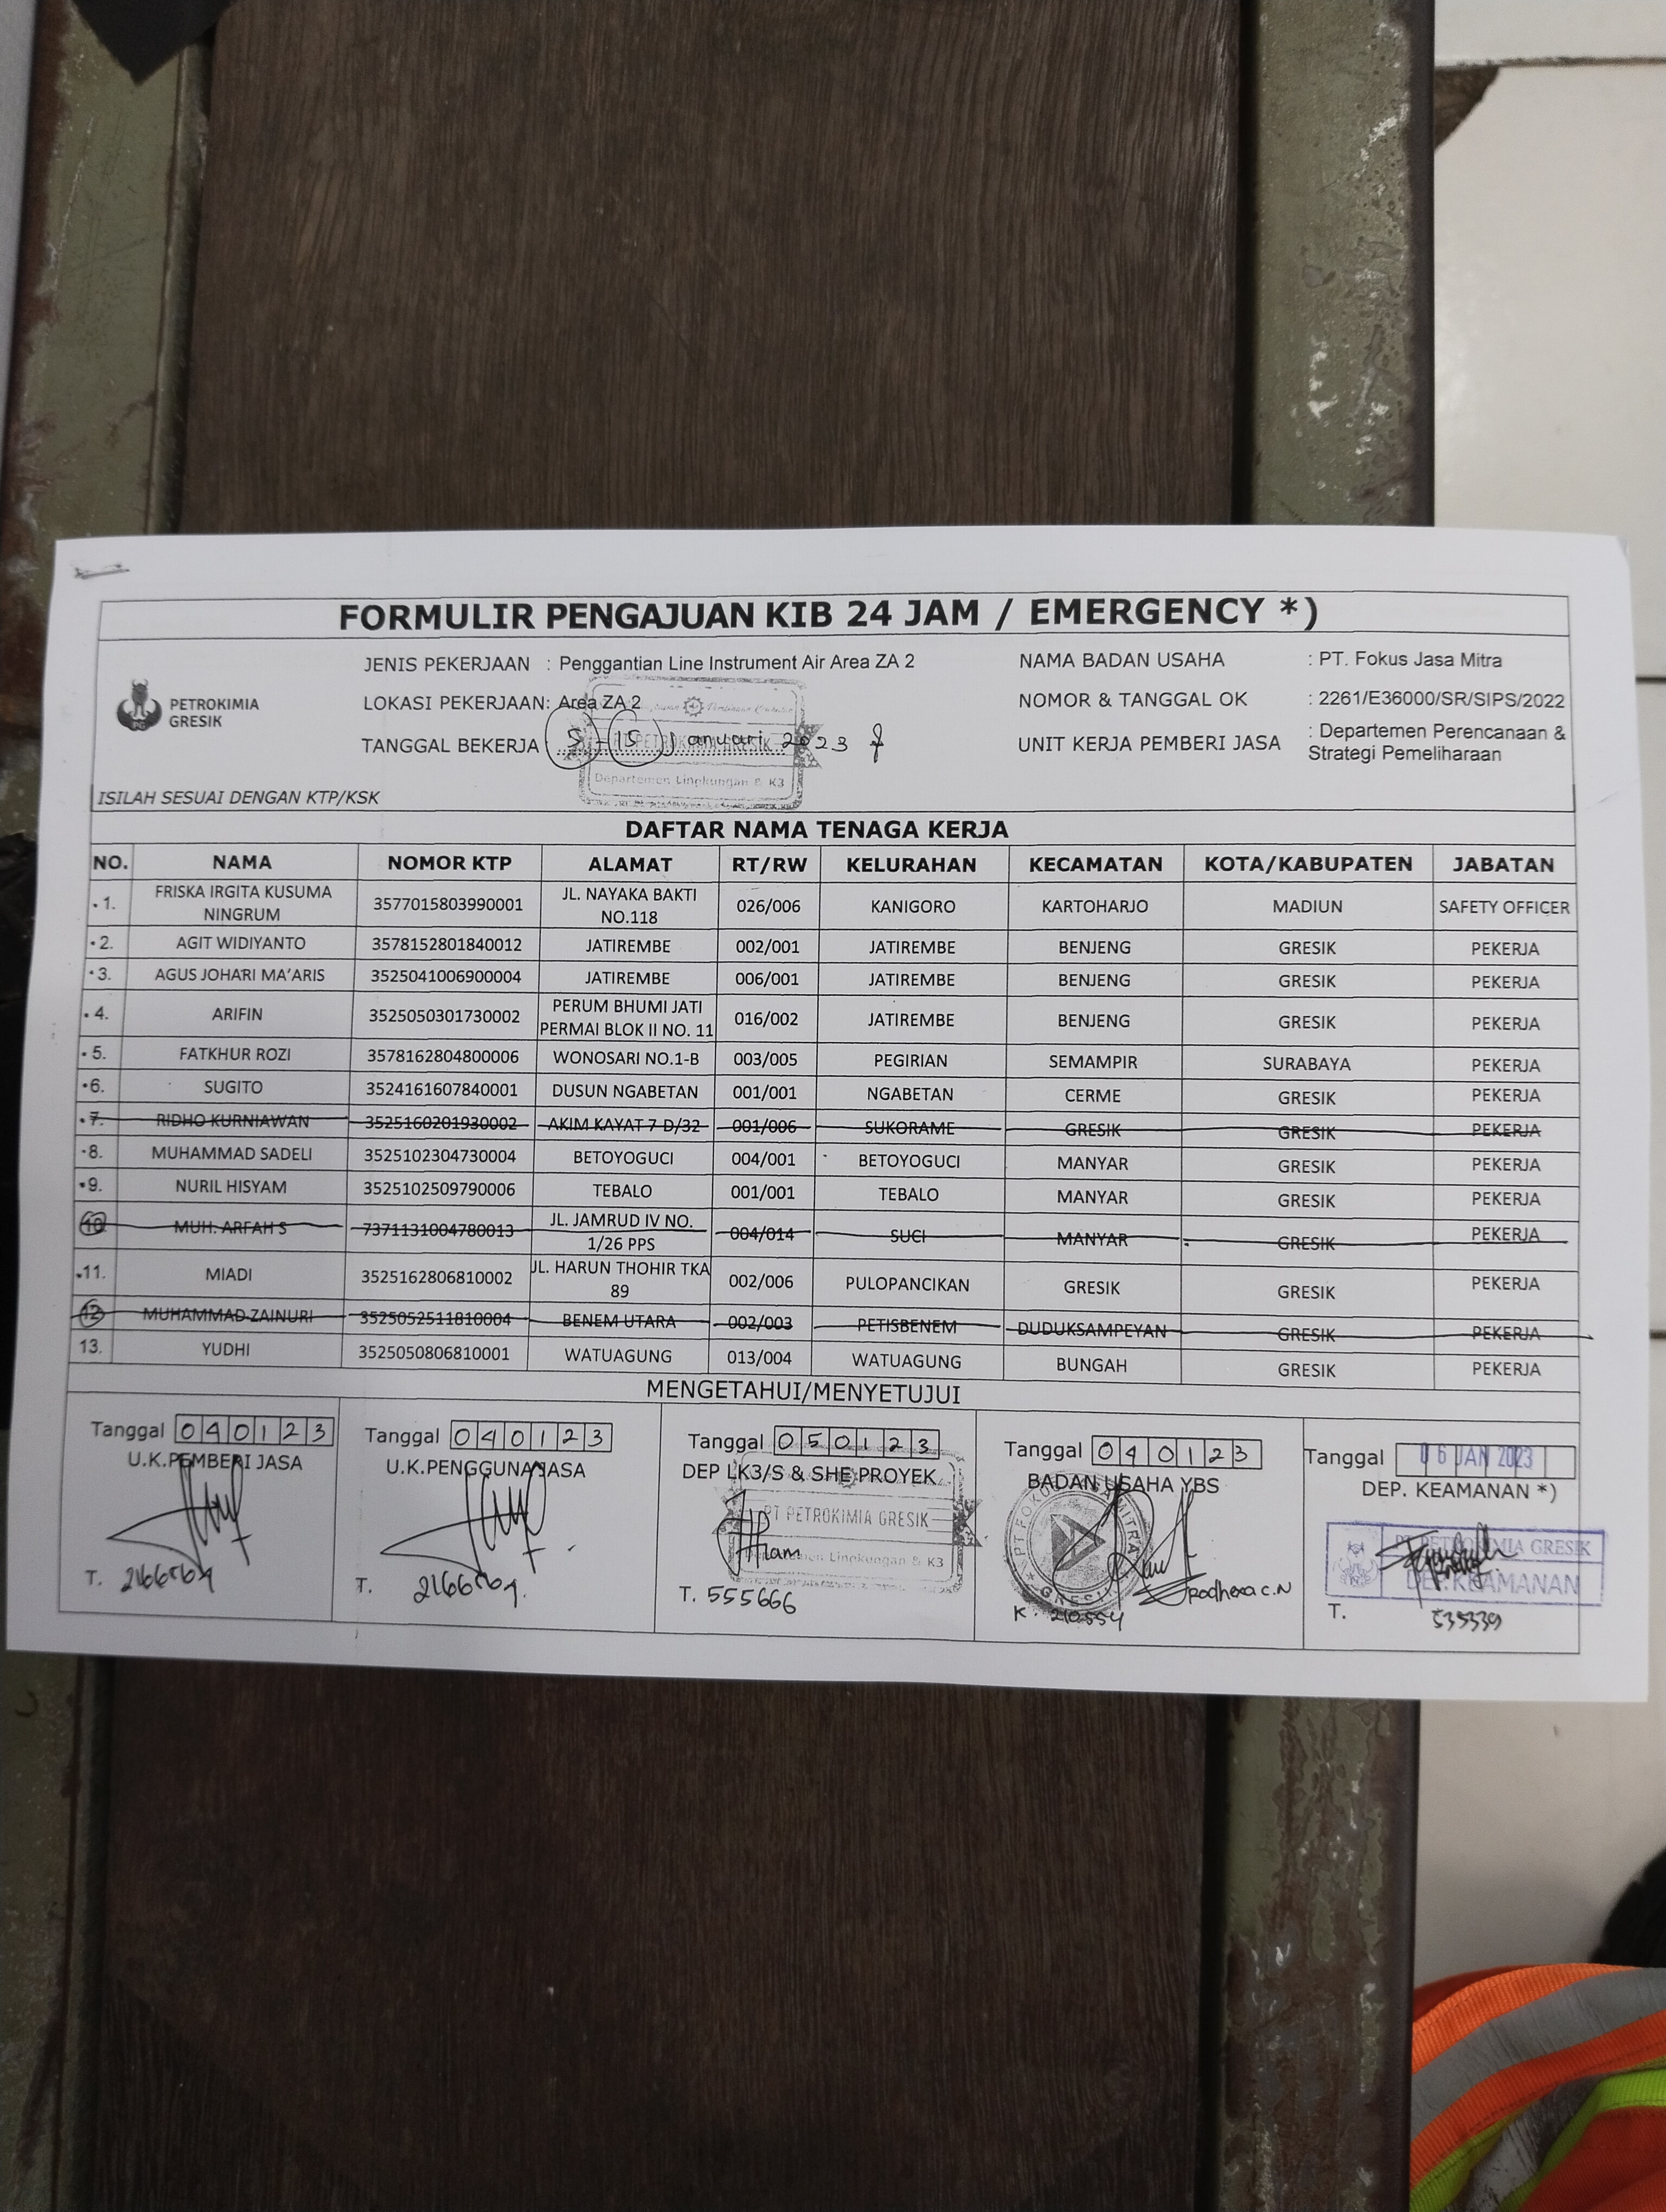 FORMULIR PENGAJUAN KIB 24 JAM / EMERGENCY *)
PETROKIMIA
GRESIK
JENIS PEKERJAAN : Penggantian Line Instrument Air Area ZA 2
LOKASI PEKERJAAN: Area ZA 2
TANGGAL BEKERJA 5 - 15 Januari 2023
NAMA BADAN USAHA : PT. Fokus Jasa Mitra
NOMOR & TANGGAL OK : 2261/E36000/SR/SIPS/2022
UNIT KERJA PEMBERI JASA : Departemen Perencanaan &
Strategi Pemeliharaan
PT PETROKIMIA GRESIK
Departemen Lingkungan & K3
ISILAH SESUAI DENGAN KTP/KSK
DAFTAR NAMA TENAGA KERJA
NO. NAMA NOMOR KTP ALAMAT RT/RW KELURAHAN KECAMATAN KOTA/KABUPATEN JABATAN
1. FRISKA IRGITA KUSUMA NINGRUM 3577015803990001 JL. NAYAKA BAKTI NO.118 026/006 KANIGORO KARTOHARJO MADIUN SAFETY OFFICER
2. AGIT WIDIYANTO 3578152801840012 JATIREMBE 002/001 JATIREMBE BENJENG GRESIK PEKERJA
3. AGUS JOHARI MA'ARIS 3525041006900004 JATIREMBE 006/001 JATIREMBE BENJENG GRESIK PEKERJA
4. ARIFIN 3525050301730002 PERUM BHUMI JATI PERMAI BLOK II NO. 11 016/002 JATIREMBE BENJENG GRESIK PEKERJA
5. FATKHUR ROZI 3578162804800006 WONOSARI NO.1-B 003/005 PEGIRIAN SEMAMPIR SURABAYA PEKERJA
6. SUGITO 3524161607840001 DUSUN NGABETAN 001/001 NGABETAN CERME GRESIK PEKERJA
7. RIDHO KURNIAWAN 3525160201930002 AKIM KAYAT 7 D/32 001/006 SUKORAME GRESIK GRESIK PEKERJA
8. MUHAMMAD SADELI 3525102304730004 BETOYOGUCI 004/001 BETOYOGUCI MANYAR GRESIK PEKERJA
9. NURIL HISYAM 3525102509790006 TEBALO 001/001 TEBALO MANYAR GRESIK PEKERJA
10 MUH. ARFAH S 7371131004780013 JL. JAMRUD IV NO. 1/26 PPS 004/014 SUCI MANYAR GRESIK PEKERJA
11. MIADI 3525162806810002 JL. HARUN THOHIR TKA 89 002/006 PULOPANCIKAN GRESIK GRESIK PEKERJA
12 MUHAMMAD ZAINURI 3525052511810004 BENEM UTARA 002/003 PETISBENEM DUDUKSAMPEYAN GRESIK PEKERJA
13. YUDHI 3525050806810001 WATUAGUNG 013/004 WATUAGUNG BUNGAH GRESIK PEKERJA
MENGETAHUI/MENYETUJUI
Tanggal 040123
U.K.PEMBERI JASA
T.
Tanggal 040123
U.K.PENGGUNA JASA
T.
Tanggal 050123
DEP LK3/S & SHE PROYEK
PT PETROKIMIA GRESIK
Departemen Lingkungan & K3
T. 555666
Tanggal 040123
BADAN USAHA YBS
GRESIK
K.
Tanggal 06 JAN 2023
DEP. KEAMANAN *)
PT PETROKIMIA GRESIK
DEP. KEAMANAN
T. 535339